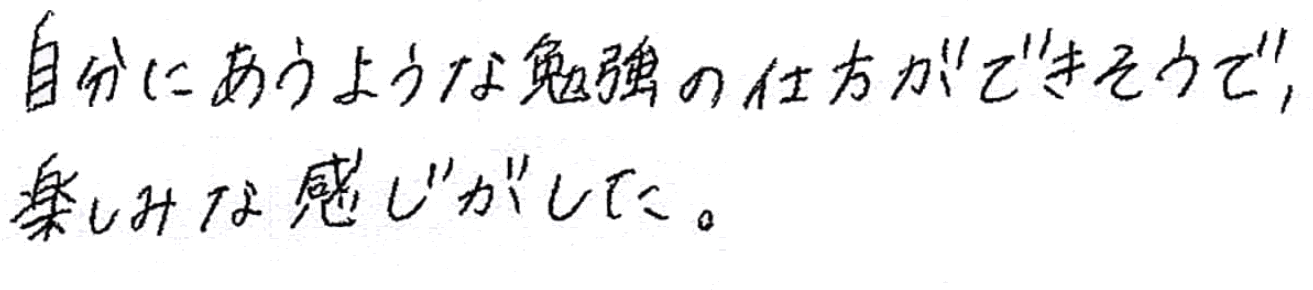 自分にあうような勉強の仕方ができそうで,
楽しみな感じがした。